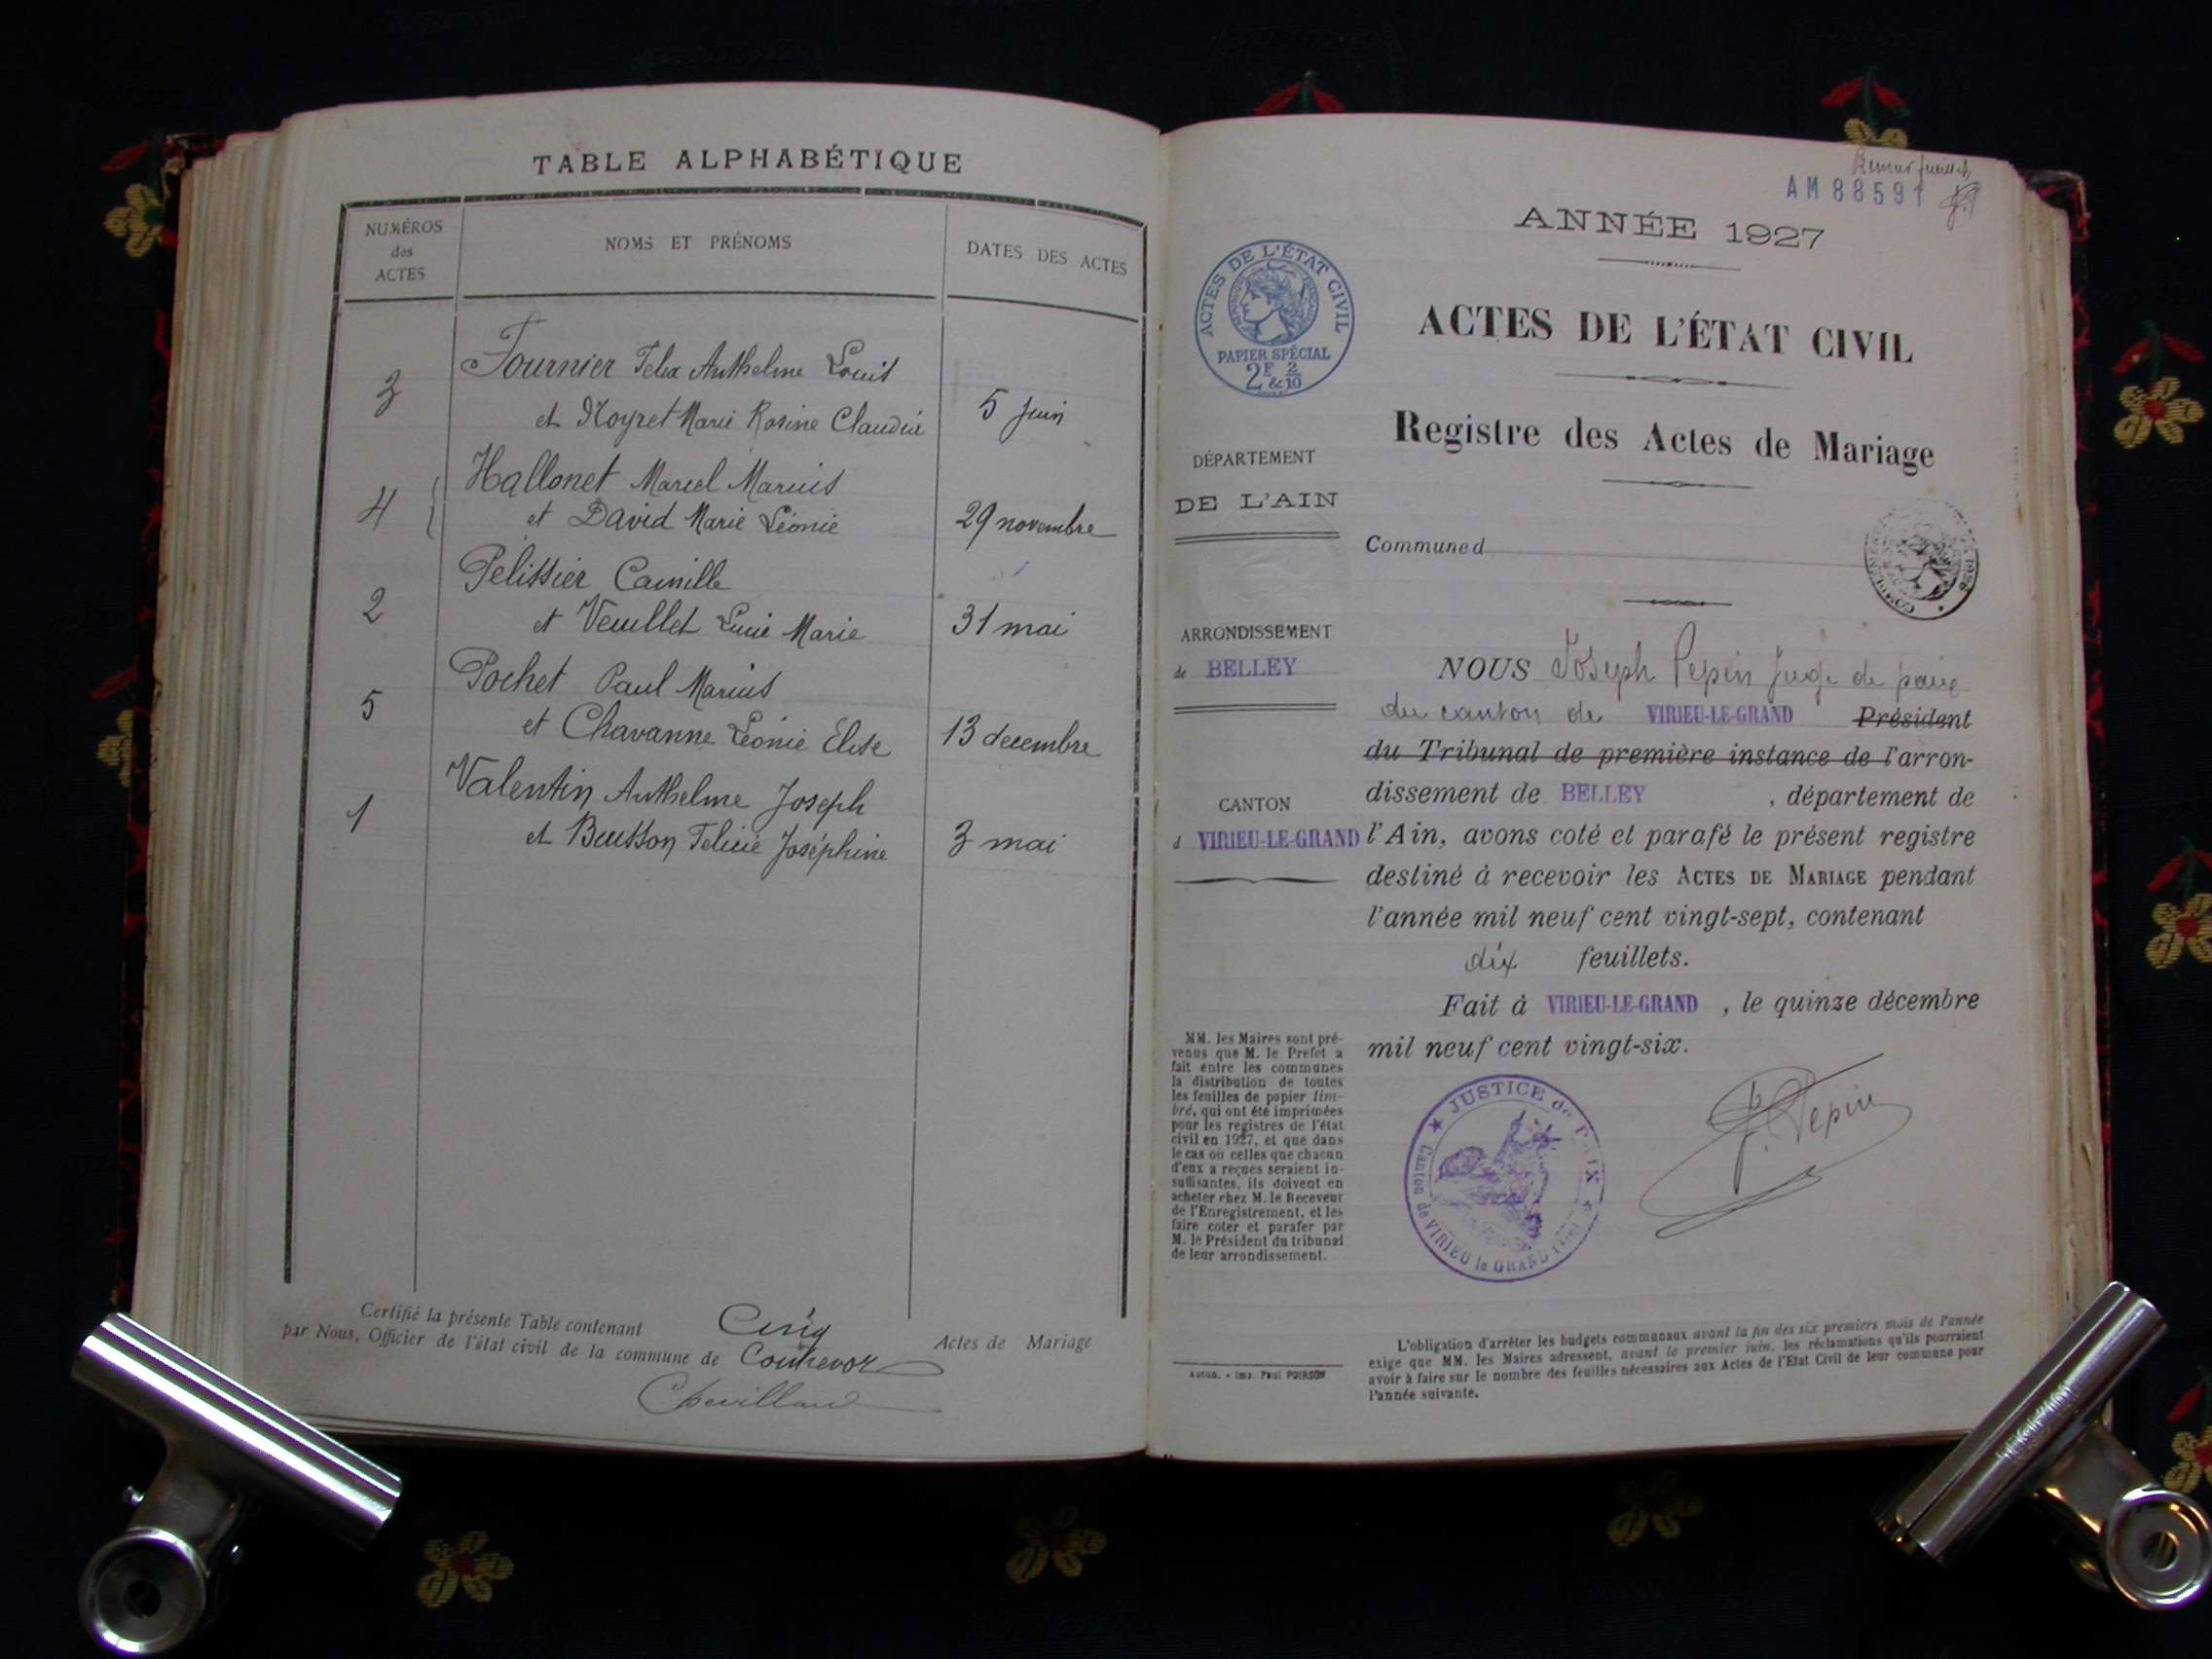 TABLE ALPHABÉTIQUE
NUMÉROS
des
ACTES
NOMS ET PRÉNOMS
DATES DES ACTES
Fournier Felix Anthelme Louis
3
et Noyret Marie Rosine Claudia 5 juin
Hallonet Marcel Marius
4
et David Marie Léonie 29 novembre
Pelissier Camille
2
et Veuillet Lucie Marie 31 mai
Pochet Paul Marius
5
et Chavanne Léonie Élise 13 decembre
Valentin Anthelme Joseph
1
et Buisson Felicie Joséphine 3 mai
Certifié la présente Table contenant Cinq Actes de Mariage
par Nous, Officier de l'état civil de la commune de
Chevillard
Premier feuillet
AM 88591
ANNÉE 1927
ACTES DE L'ÉTAT CIVIL
PAPIER SPÉCIAL
2F 2/10
&
ACTES DE L'ÉTAT CIVIL
Registre des Actes de Mariage
DÉPARTEMENT
DE L'AIN
Commune d
ARRONDISSEMENT
de BELLEY
CANTON
d VIRIEU-LE-GRAND
NOUS Joseph Pepin Juge de paix
du canton de VIRIEU-LE-GRAND Président
du Tribunal de première instance de l'arron-
dissement de BELLEY , département de
l'Ain, avons coté et parafé le présent registre
destiné à recevoir les ACTES DE MARIAGE pendant
l'année mil neuf cent vingt-sept, contenant
dix feuillets.
Fait à VIRIEU-LE-GRAND , le quinze décembre
mil neuf cent vingt-six.
MM. les Maires sont pré-
venus que M. le Prefet a
fait entre les communes
la distribution de toutes
les feuilles de papier tim-
bré, qui ont été imprimées
pour les registres de l'état
civil en 1927, et que dans
le cas où celles que chacun
d'eux a reçues seraient in-
suffisantes, ils doivent en
acheter chez M. le Receveur
de l'Enregistrement, et les
faire coter et parafer par
M. le Président du tribunal
de leur arrondissement.
JUSTICE de PAIX
Canton de VIRIEU le GRAND (Ain)
J. Pepin
Autun. - Imp. Paul POIRSON
L'obligation d'arrêter les budgets communaux avant la fin des six premiers mois de l'année
exige que MM. les Maires adressent, avant le premier juin, les réclamations qu'ils pourraient
avoir à faire sur le nombre des feuilles nécessaires aux Actes de l'Etat Civil de leur commune pour
l'année suivante.